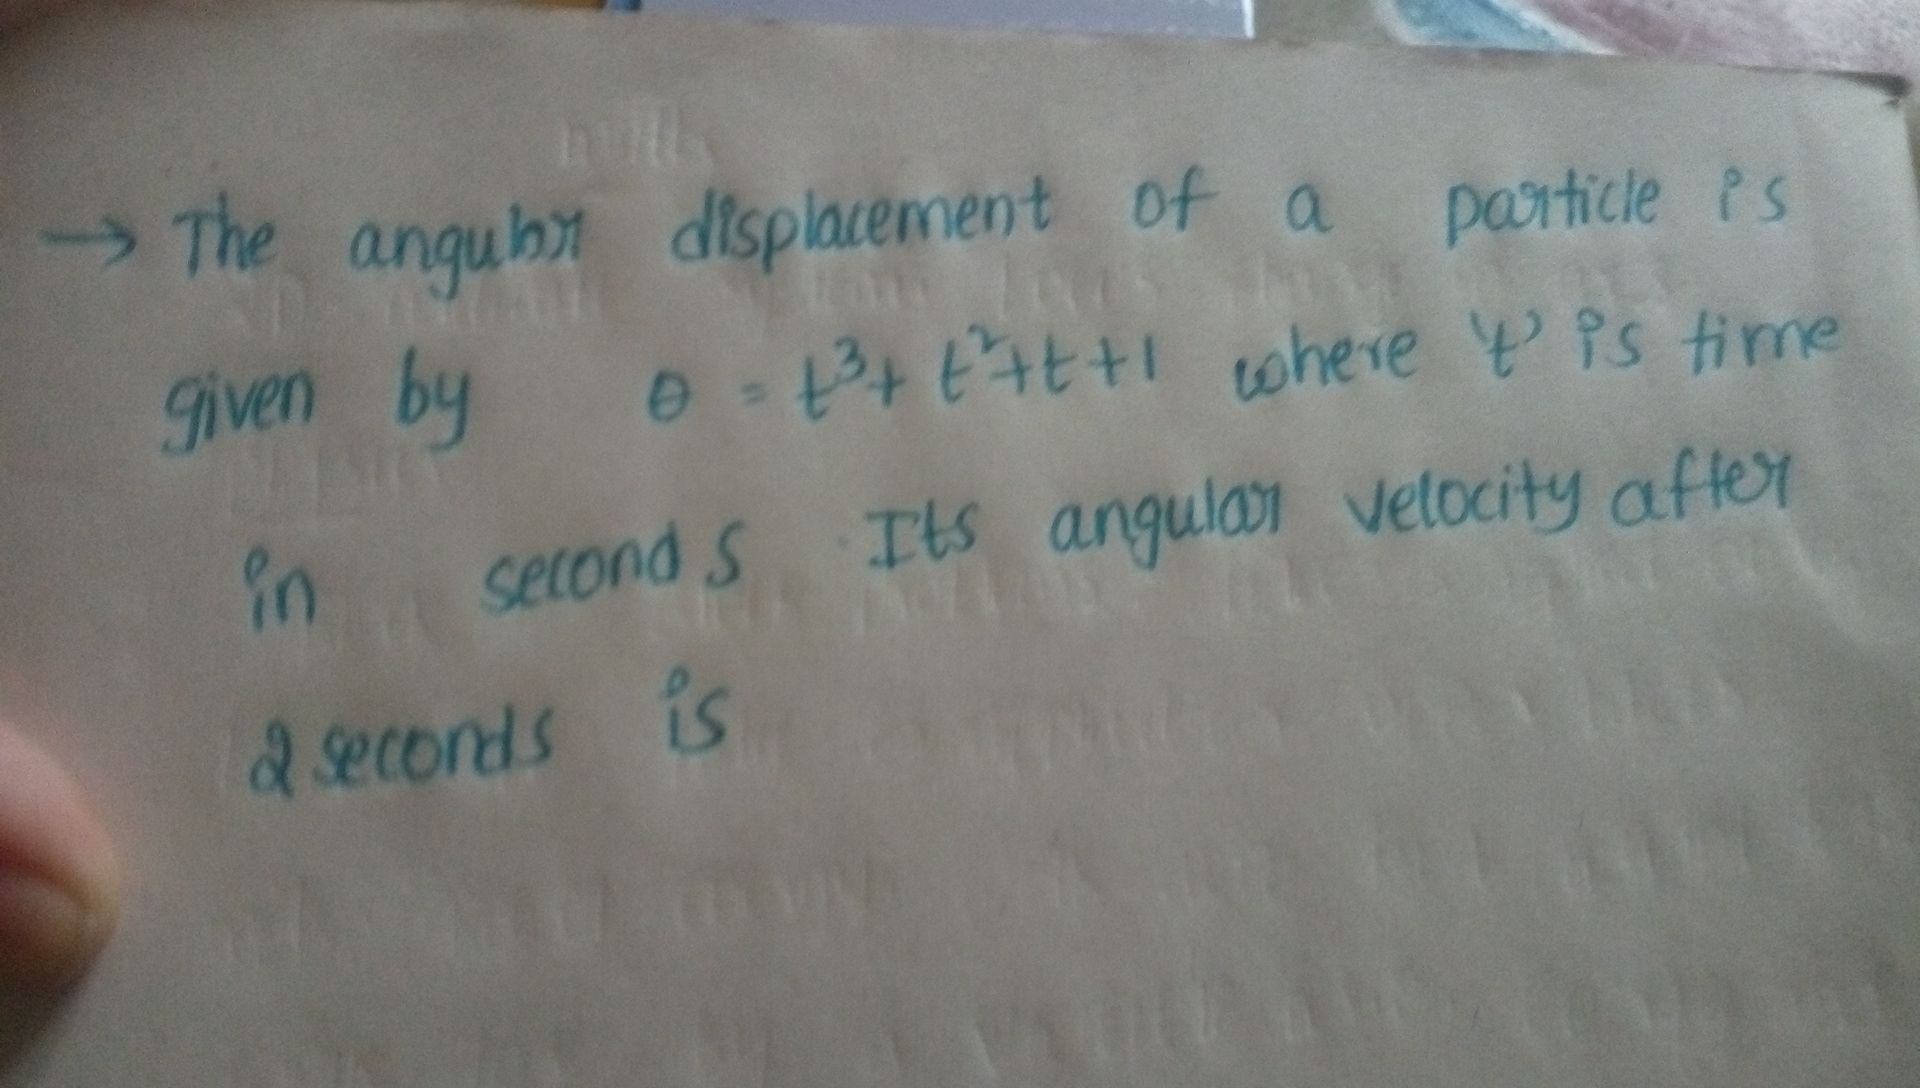 → The angular displacement of a particle is
given by θ = t³+ t²+t+1 where 't' is time
in seconds. Its angular velocity after
2 seconds is